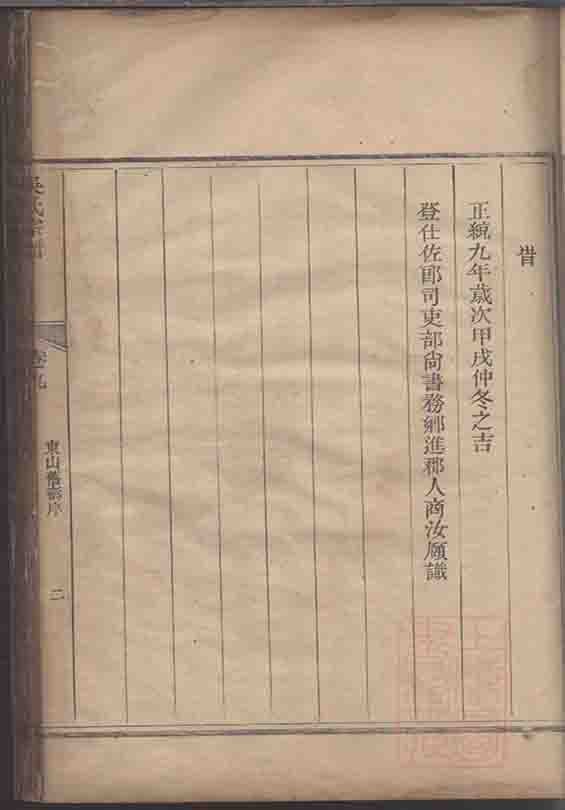 昔
正統九年歲次甲戌仲冬之吉
登仕佐郎司吏部尙書務鄉進郡人商汝願識
吳氏宗譜
卷九
東山 序
二